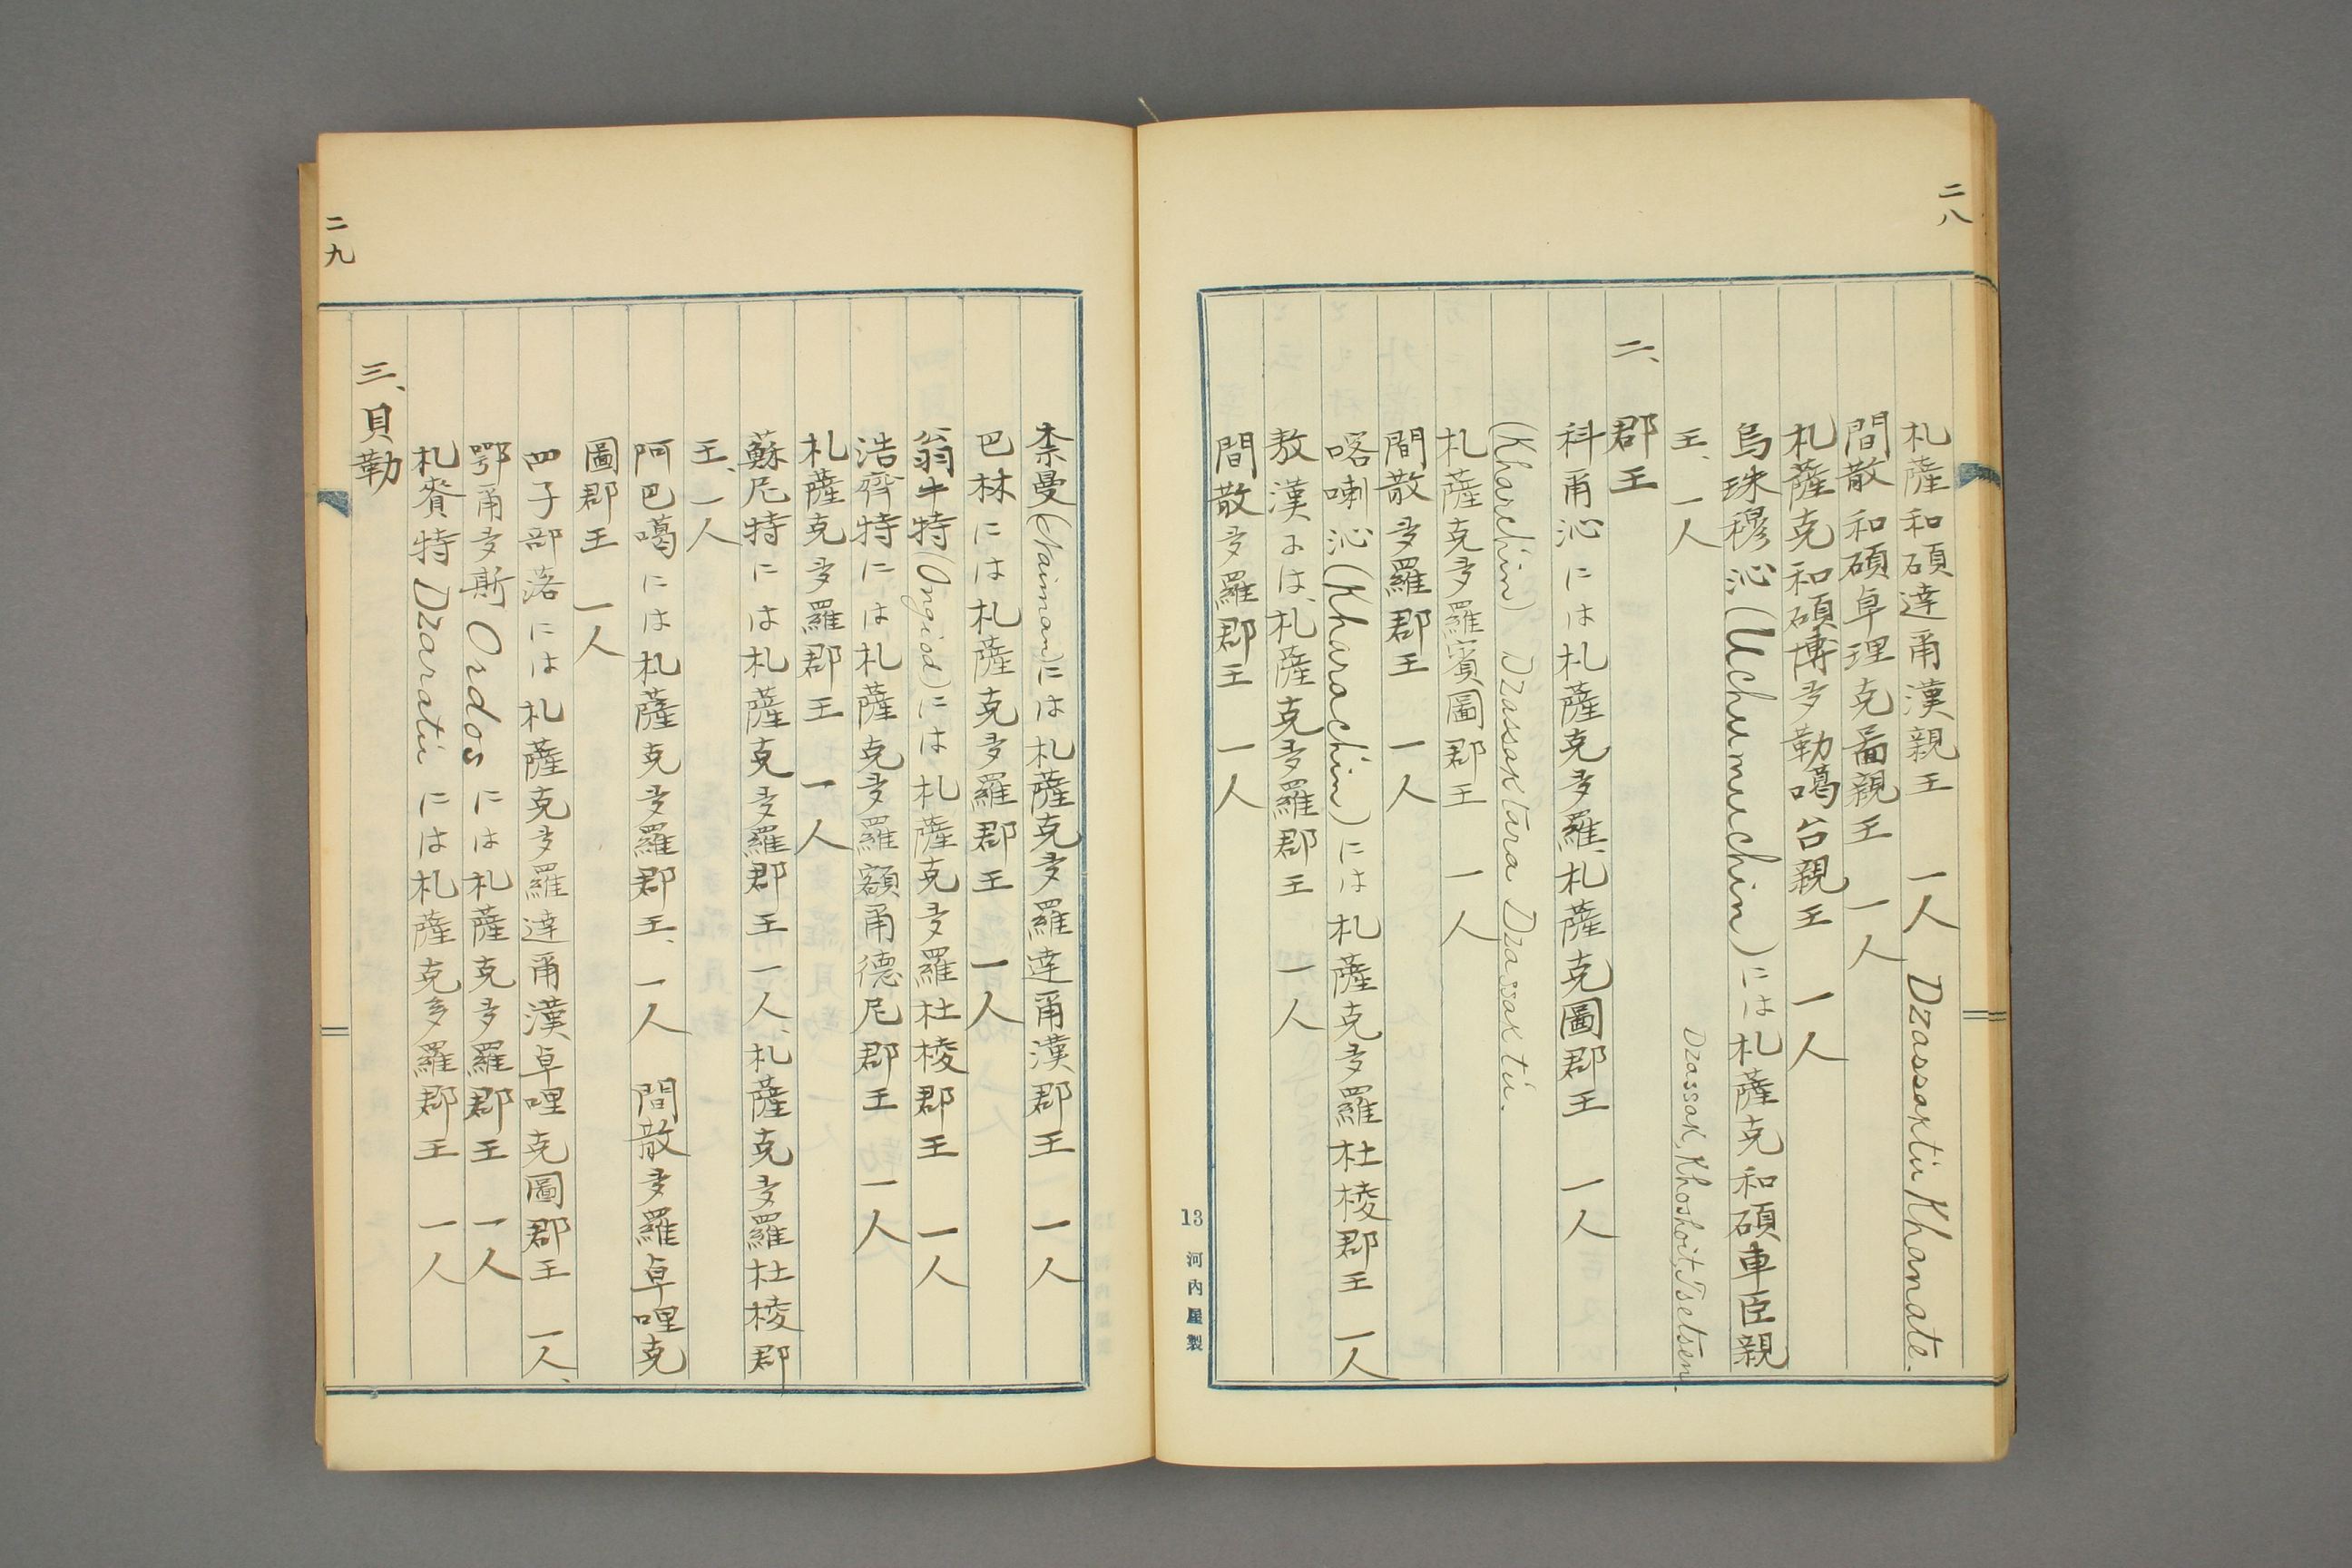 二八
札薩和碩達甬漢親王　一人 Dzassaktú Khanate.
間散和碩卓理克啚親王　一人
札薩克和碩博多勒噶台親王　一人
烏珠穆沁(Uchumuchin)には札薩克和碩車臣親
王、一人　Dzassak, Khoshoit, Tsetsen.
二、郡王
科甬沁には札薩克多羅、札薩克圖郡王　一人
(Kharchin) Dzassak tara Dzassak tú.
札薩克多羅賓圖郡王　一人
間散多羅郡王　一人
喀喇沁(Kharachin)には札薩克多羅杜棱郡王　一人
敖漢には、札薩克多羅郡王　一人
間散多羅郡王　一人
13 河内屋製
二九
柰曼(Naiman)には札薩克多羅達甬漢郡王　一人
巴林には札薩克多羅郡王　一人
翁牛特(Ongiod)には札薩克多羅杜棱郡王　一人
浩齊特には札薩克多羅額甬德尼郡王　一人
札薩克多羅郡王　一人
蘇尼特には札薩克多羅郡王　一人、札薩克多羅杜棱郡
王、一人
阿巴噶には札薩克多羅郡王、一人　間散多羅卓哩克
圖郡王　一人
四子部落には札薩克多羅達甬漢卓哩克圖郡王　一人、
鄂甬多斯 Ordos には札薩克多羅郡王　一人
札賚特 Dzaratú には札薩克多羅郡王　一人
三、貝勒